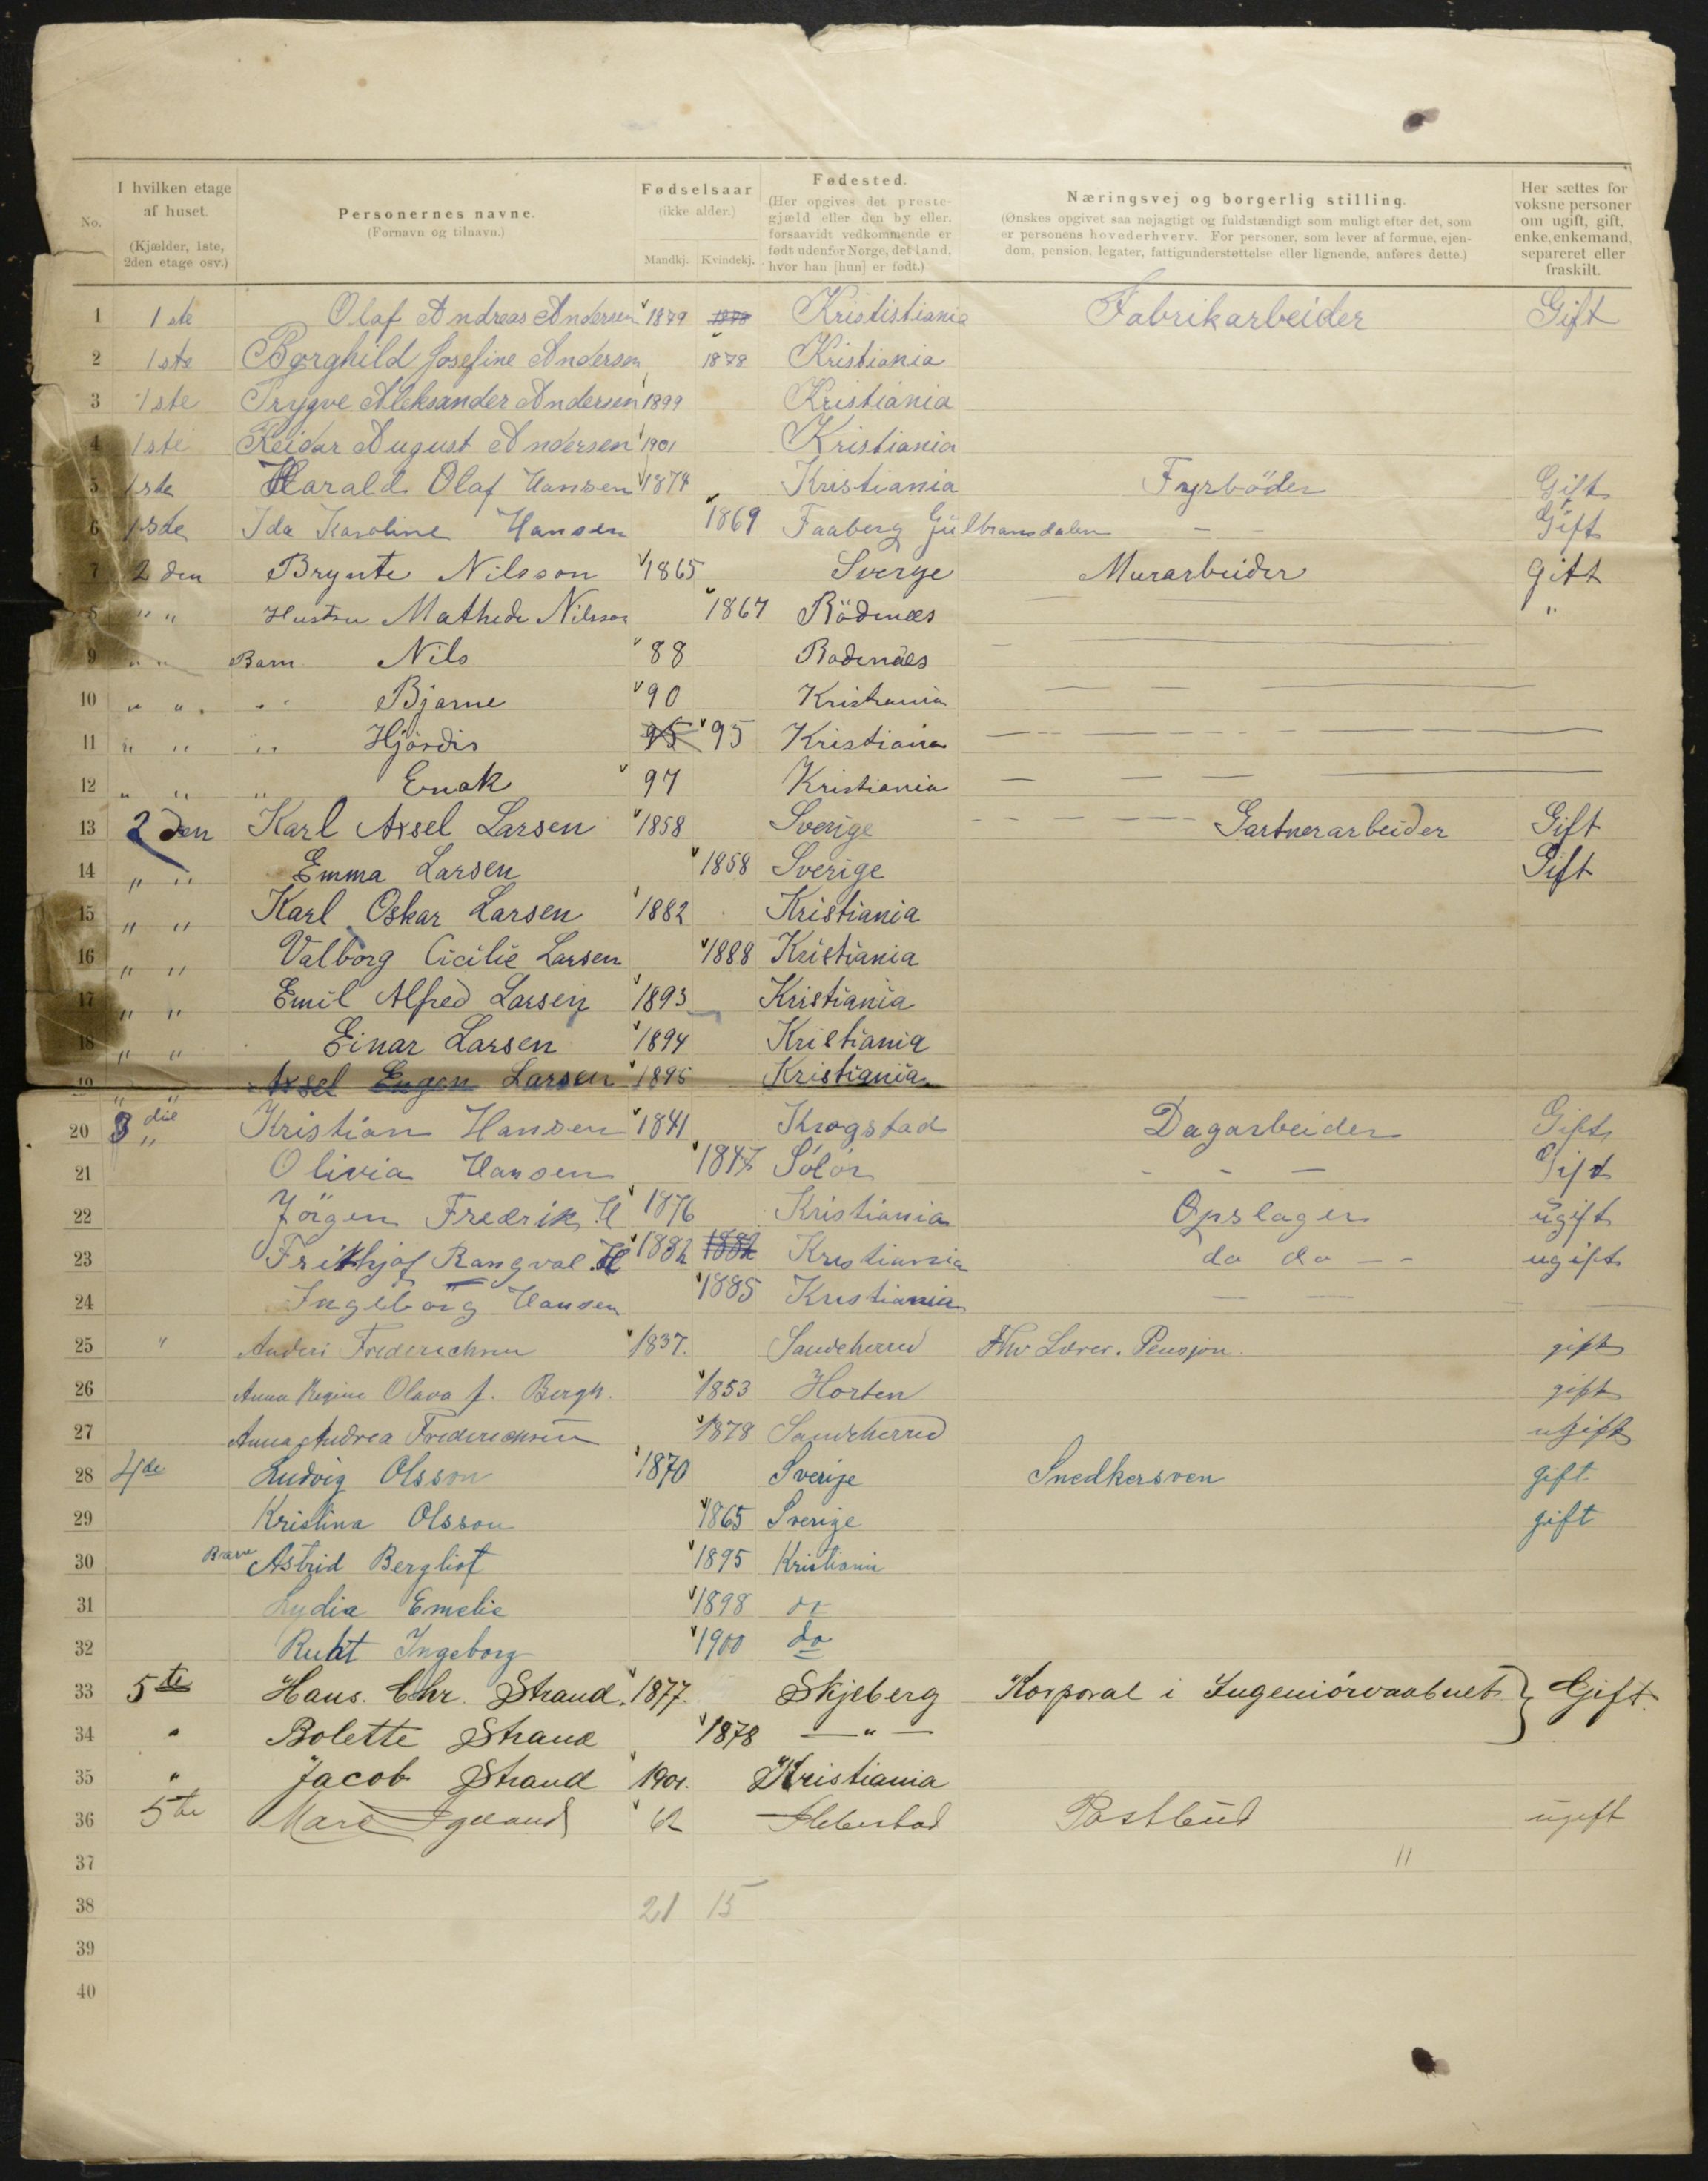 No.
I hvilken etage af huset. (Kjælder, 1ste, 2den etage osv.)
Personernes navne. (Fornavn og tilnavn.)
Fødselsaar (ikke alder.) Mandkj. Kvindekj.
Fødested. (Her opgives det prestegjæld eller den by eller, forsaavidt vedkommende er født udenfor Norge, det land, hvor han [hun] er født.)
Næringsvej og borgerlig stilling. (Ønskes opgivet saa nøjagtigt og fuldstændigt som muligt efter det, som er personens hovederhverv. For personer, som lever af formue, ejendom, pension, legater, fattigunderstøttelse eller lignende, anføres dette.)
Her sættes for voksne personer om ugift, gift, enke, enkemand, separeret eller fraskilt.
1 1ste Olaf Andreas Andersen 1879 1878 Krististiania Fabrikarbeider Gift
2 1ste Borghild Josefine Andersen 1878 Kristiania
3 1ste Trygve Aleksander Andersen 1899 Kristiania
4 1ste Reidar August Andersen 1901 Kristiania
5 1ste Harald Olaf Hansen 1874 Kristiania Fyrböder Gift
6 1ste Ida Karoline Hansen 1869 Faaberg Gulbransdalen — — Gift
7 2den Brynte Nilsson 1865 Sverge Murarbeider gift
8 " " Hustru Mathede Nilsson 1867 Rödenæs "
9 " " Barn Nils 88 Rodenæs
10 " " " Bjarne 90 Kristiania
11 " " " Hjördis 95 95 Kristiania
12 " " " Enok 97 Kristiania
13 2den Karl Axsel Larsen 1858 Sverige Gartnerarbeider Gift
14 " " Emma Larsen 1858 Sverige Gift
15 " " Karl Oskar Larsen 1882 Kristiania
16 " " Valborg Cicilie Larsen 1888 Kristiania
17 " " Emil Alfred Larsen 1893 Kristiania
18 " " Einar Larsen 1894 Kristiania
19 " " Axsel Eugen Larsen 1895 Kristiania
20 3die " Kristian Hansen 1841 Krogstad Dagarbeider Gift
21 Olivia Hansen 1847 Solör - - — Gift
22 Jörgen Fredrik H 1876 Kristiania Opslager ugift
23 Frithjof Rangval H 1882 1882 Kristiania do do — ugift
24 Ingeborg Hansen 1885 Kristiania — —
25 " Anders Frederichsen 1837. Sandeherred Fhv Lærer. Pensjon. gift
26 Anna Regine Olava f. Bergh. 1853 Horten gift
27 Anna Andrea Frederichsen 1878 Sandeherred ugift
28 4de Ludvig Olsson 1870 Sverige Snedkersven gift
29 Kristina Olsson 1865 Sverige gift
30 Astrid Bergliot 1895 Kristiania
31 Lydia Emelie 1898 do
32 Ruht Ingeborg 1900 do
33 5te Hans. Chr. Strand. 1877. Skjeberg Korporal i Ingeniörvaabnet } Gift.
34 " Bolette Strand 1878 — " —
35 " Jacob Strand 1901. Kristiania
36 5te 62 Postbud ugift
37 11
38 21 15
39
40